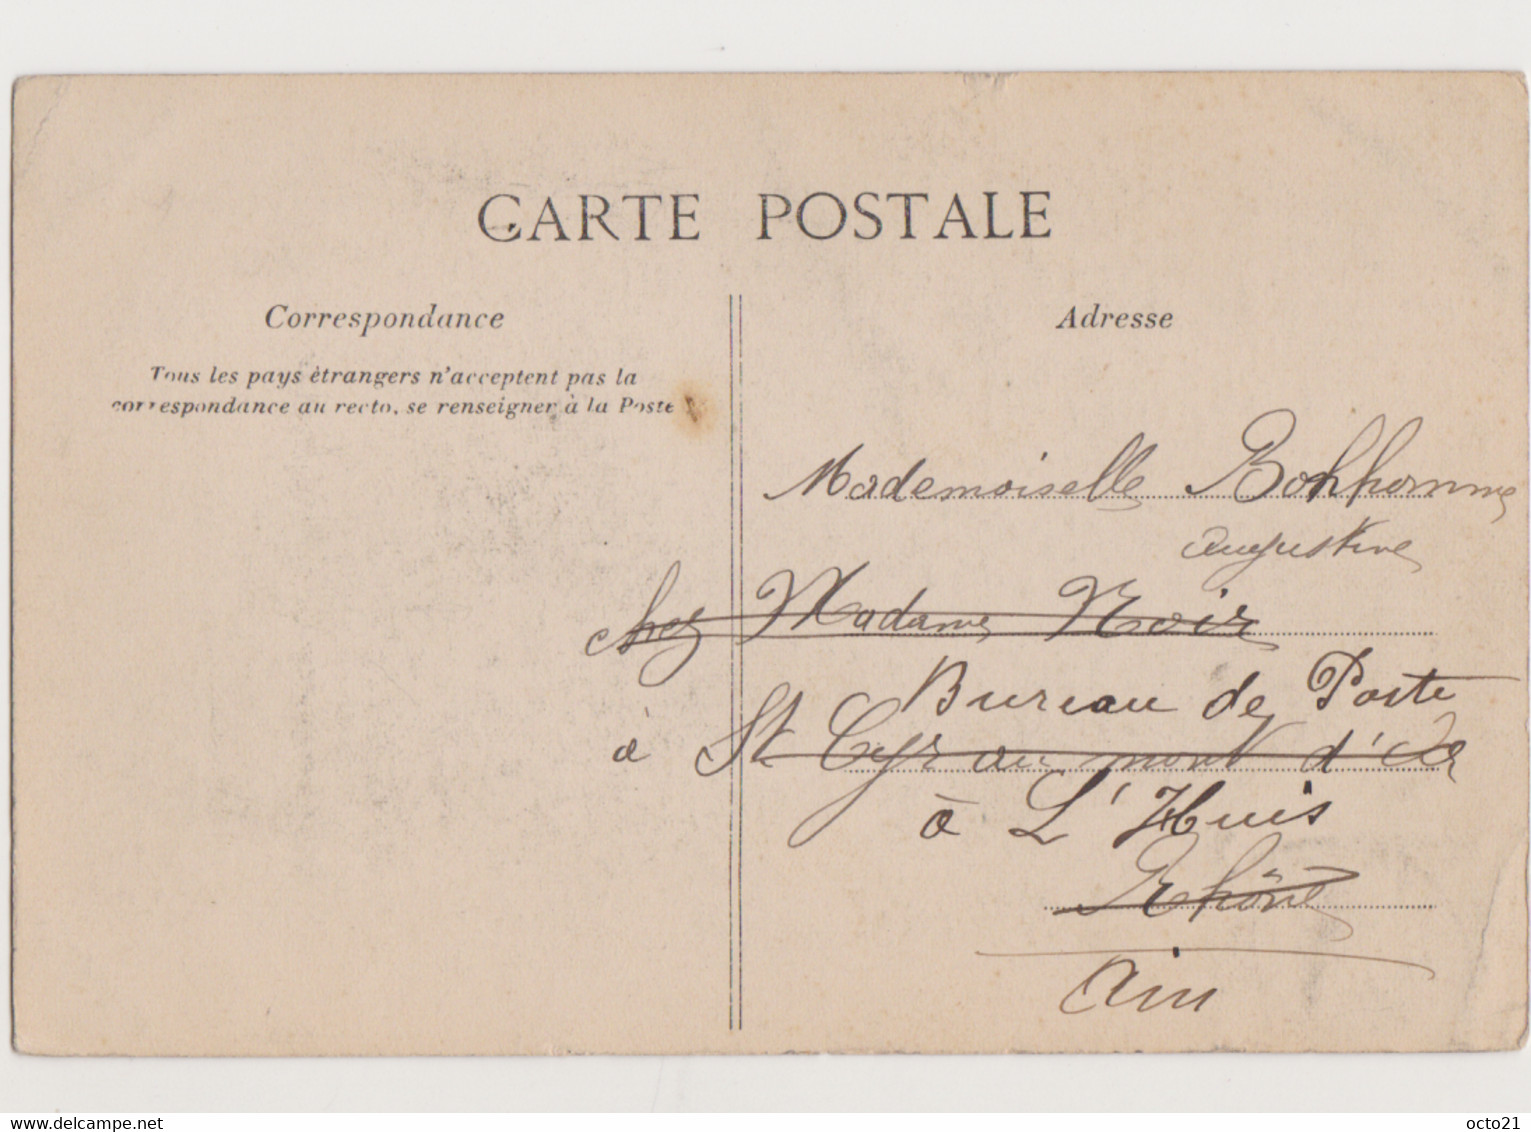 CARTE POSTALE
Correspondance
Tous les pays étrangers n'acceptent pas la
correspondance au recto, se renseigner à la Poste
Adresse
Mademoiselle Bonhomme
Augustine
chez Madame Noir
Bureau de Poste
à St Cyr au mont d'Or
à L'Huis
Rhône
Ain
www.delcampe.net
octo21